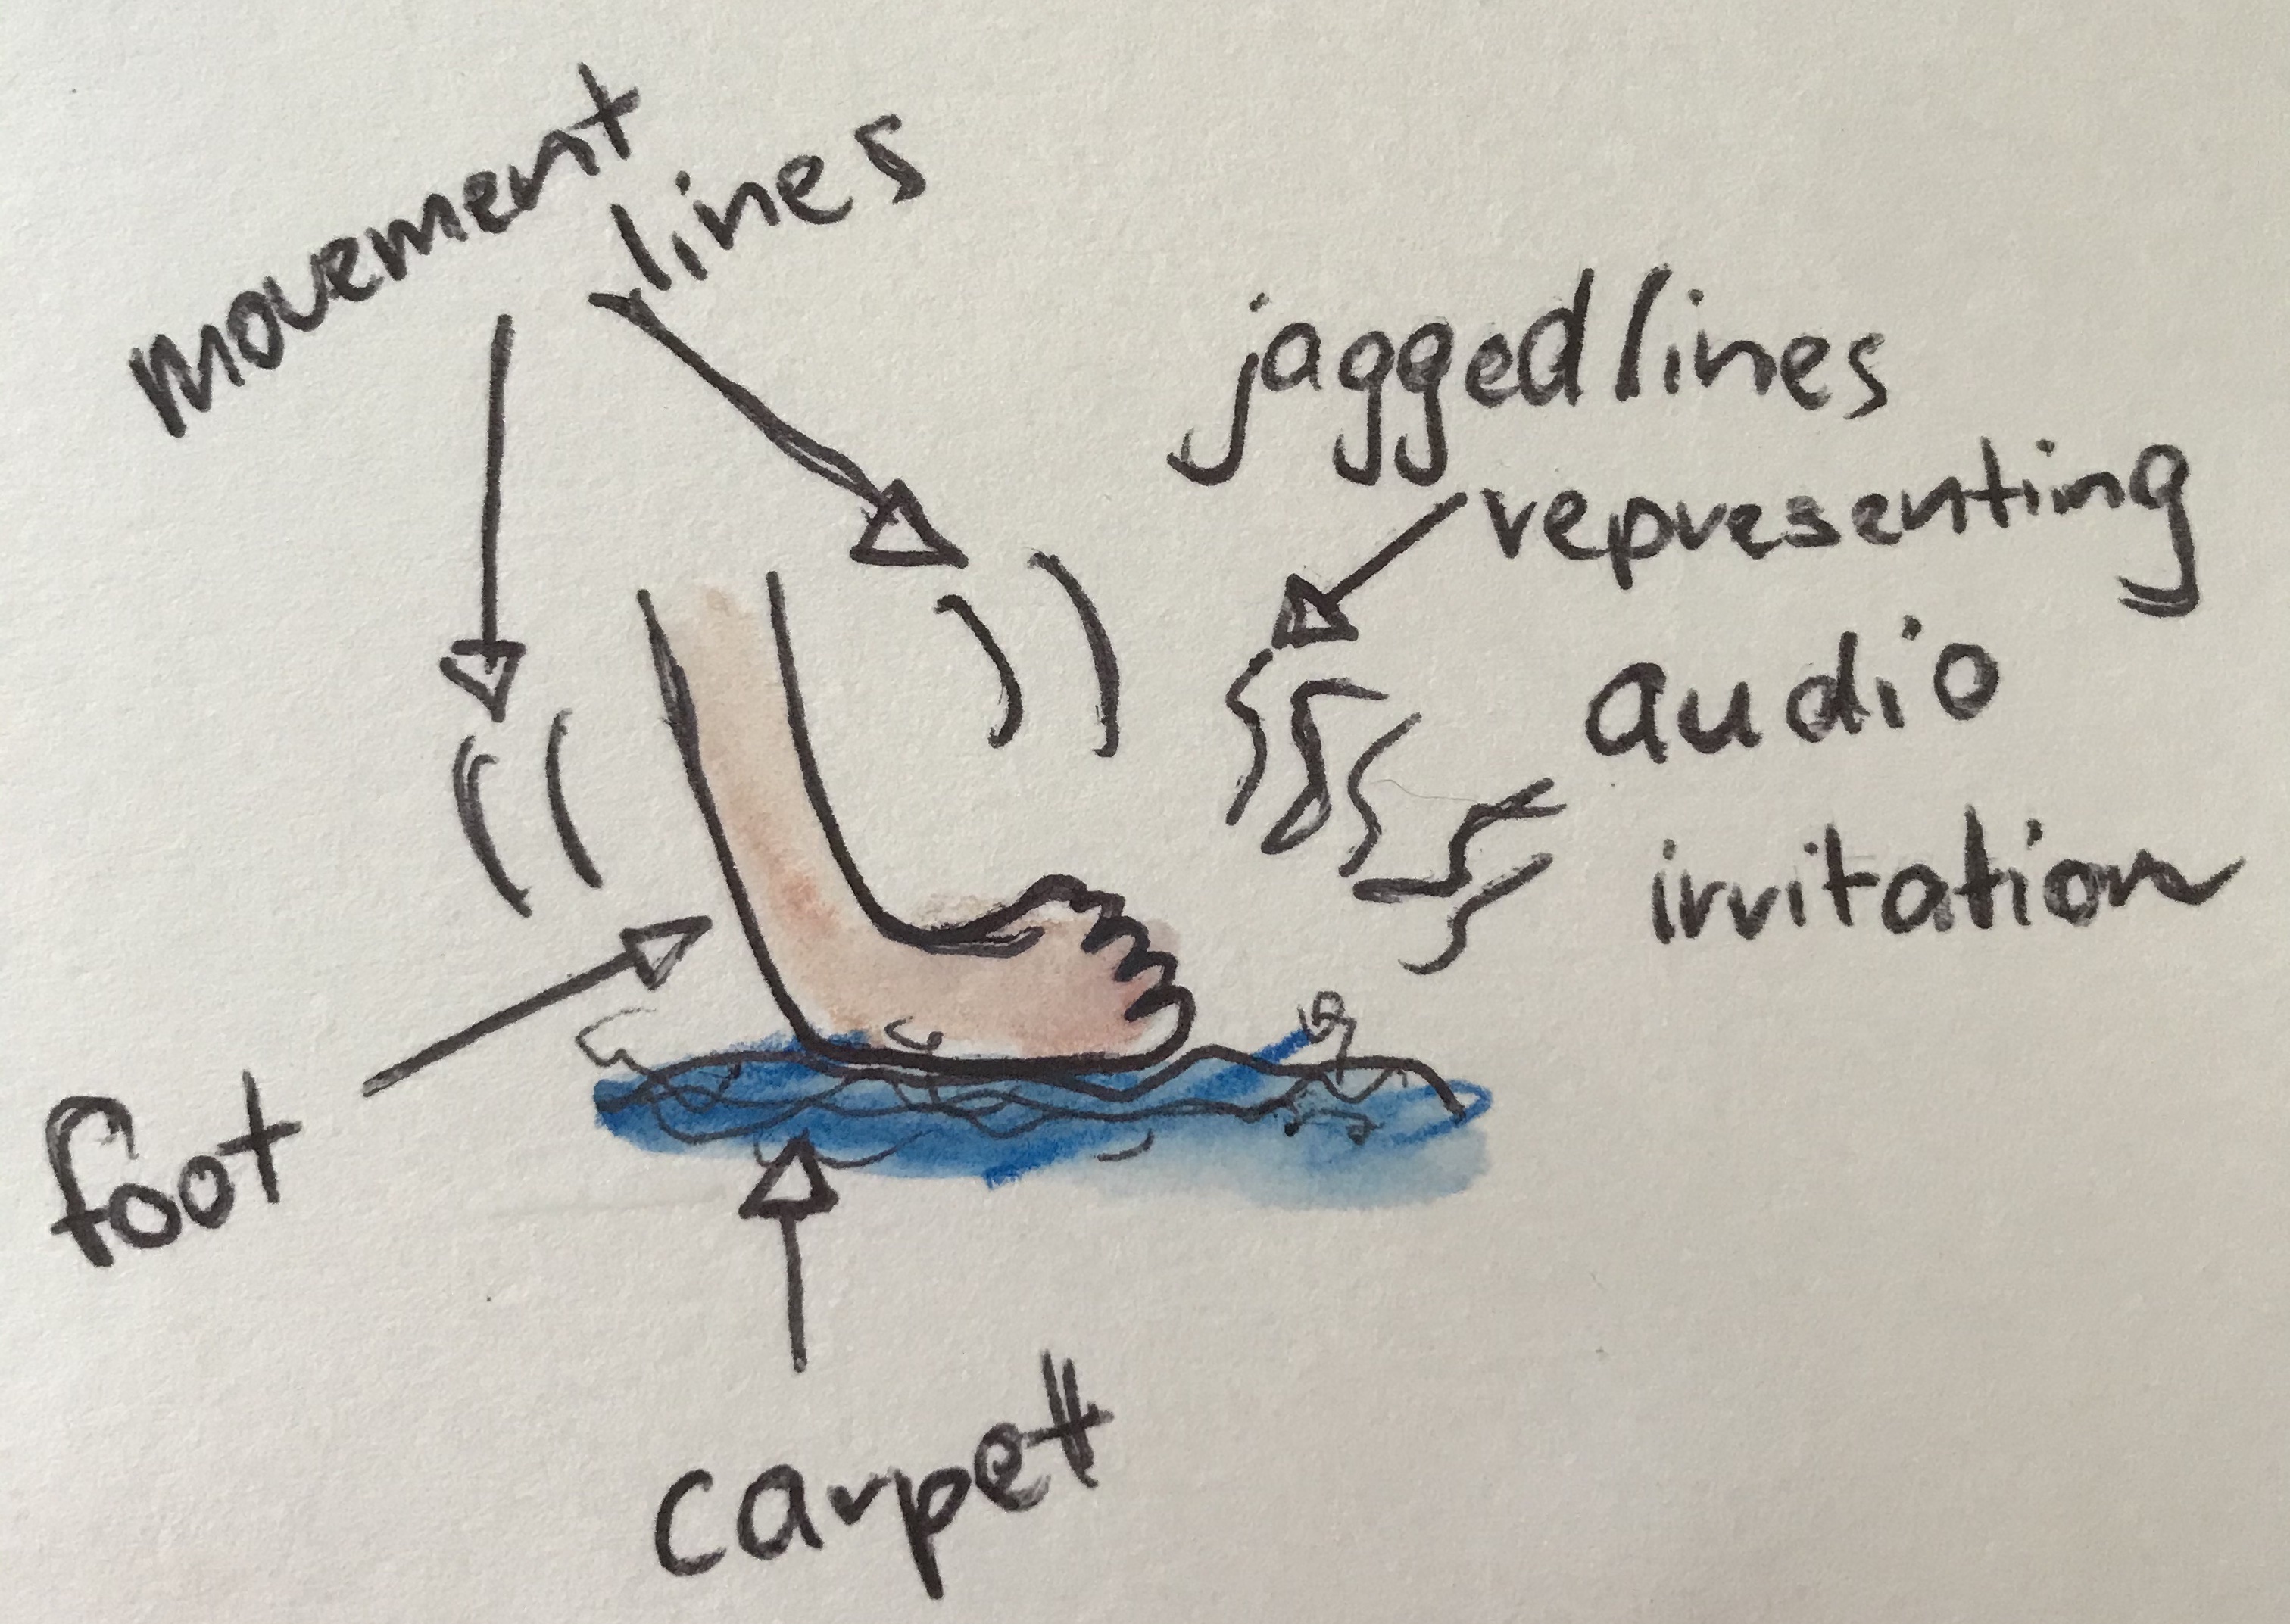 movement
lines
jagged lines
representing
audio
irritation
foot
carpet